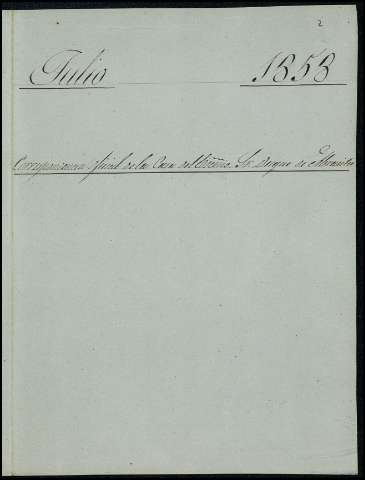 2
Julio 1858
Correspondencia oficial de la Casa del Exmo. Sr. Duque de Abrantes